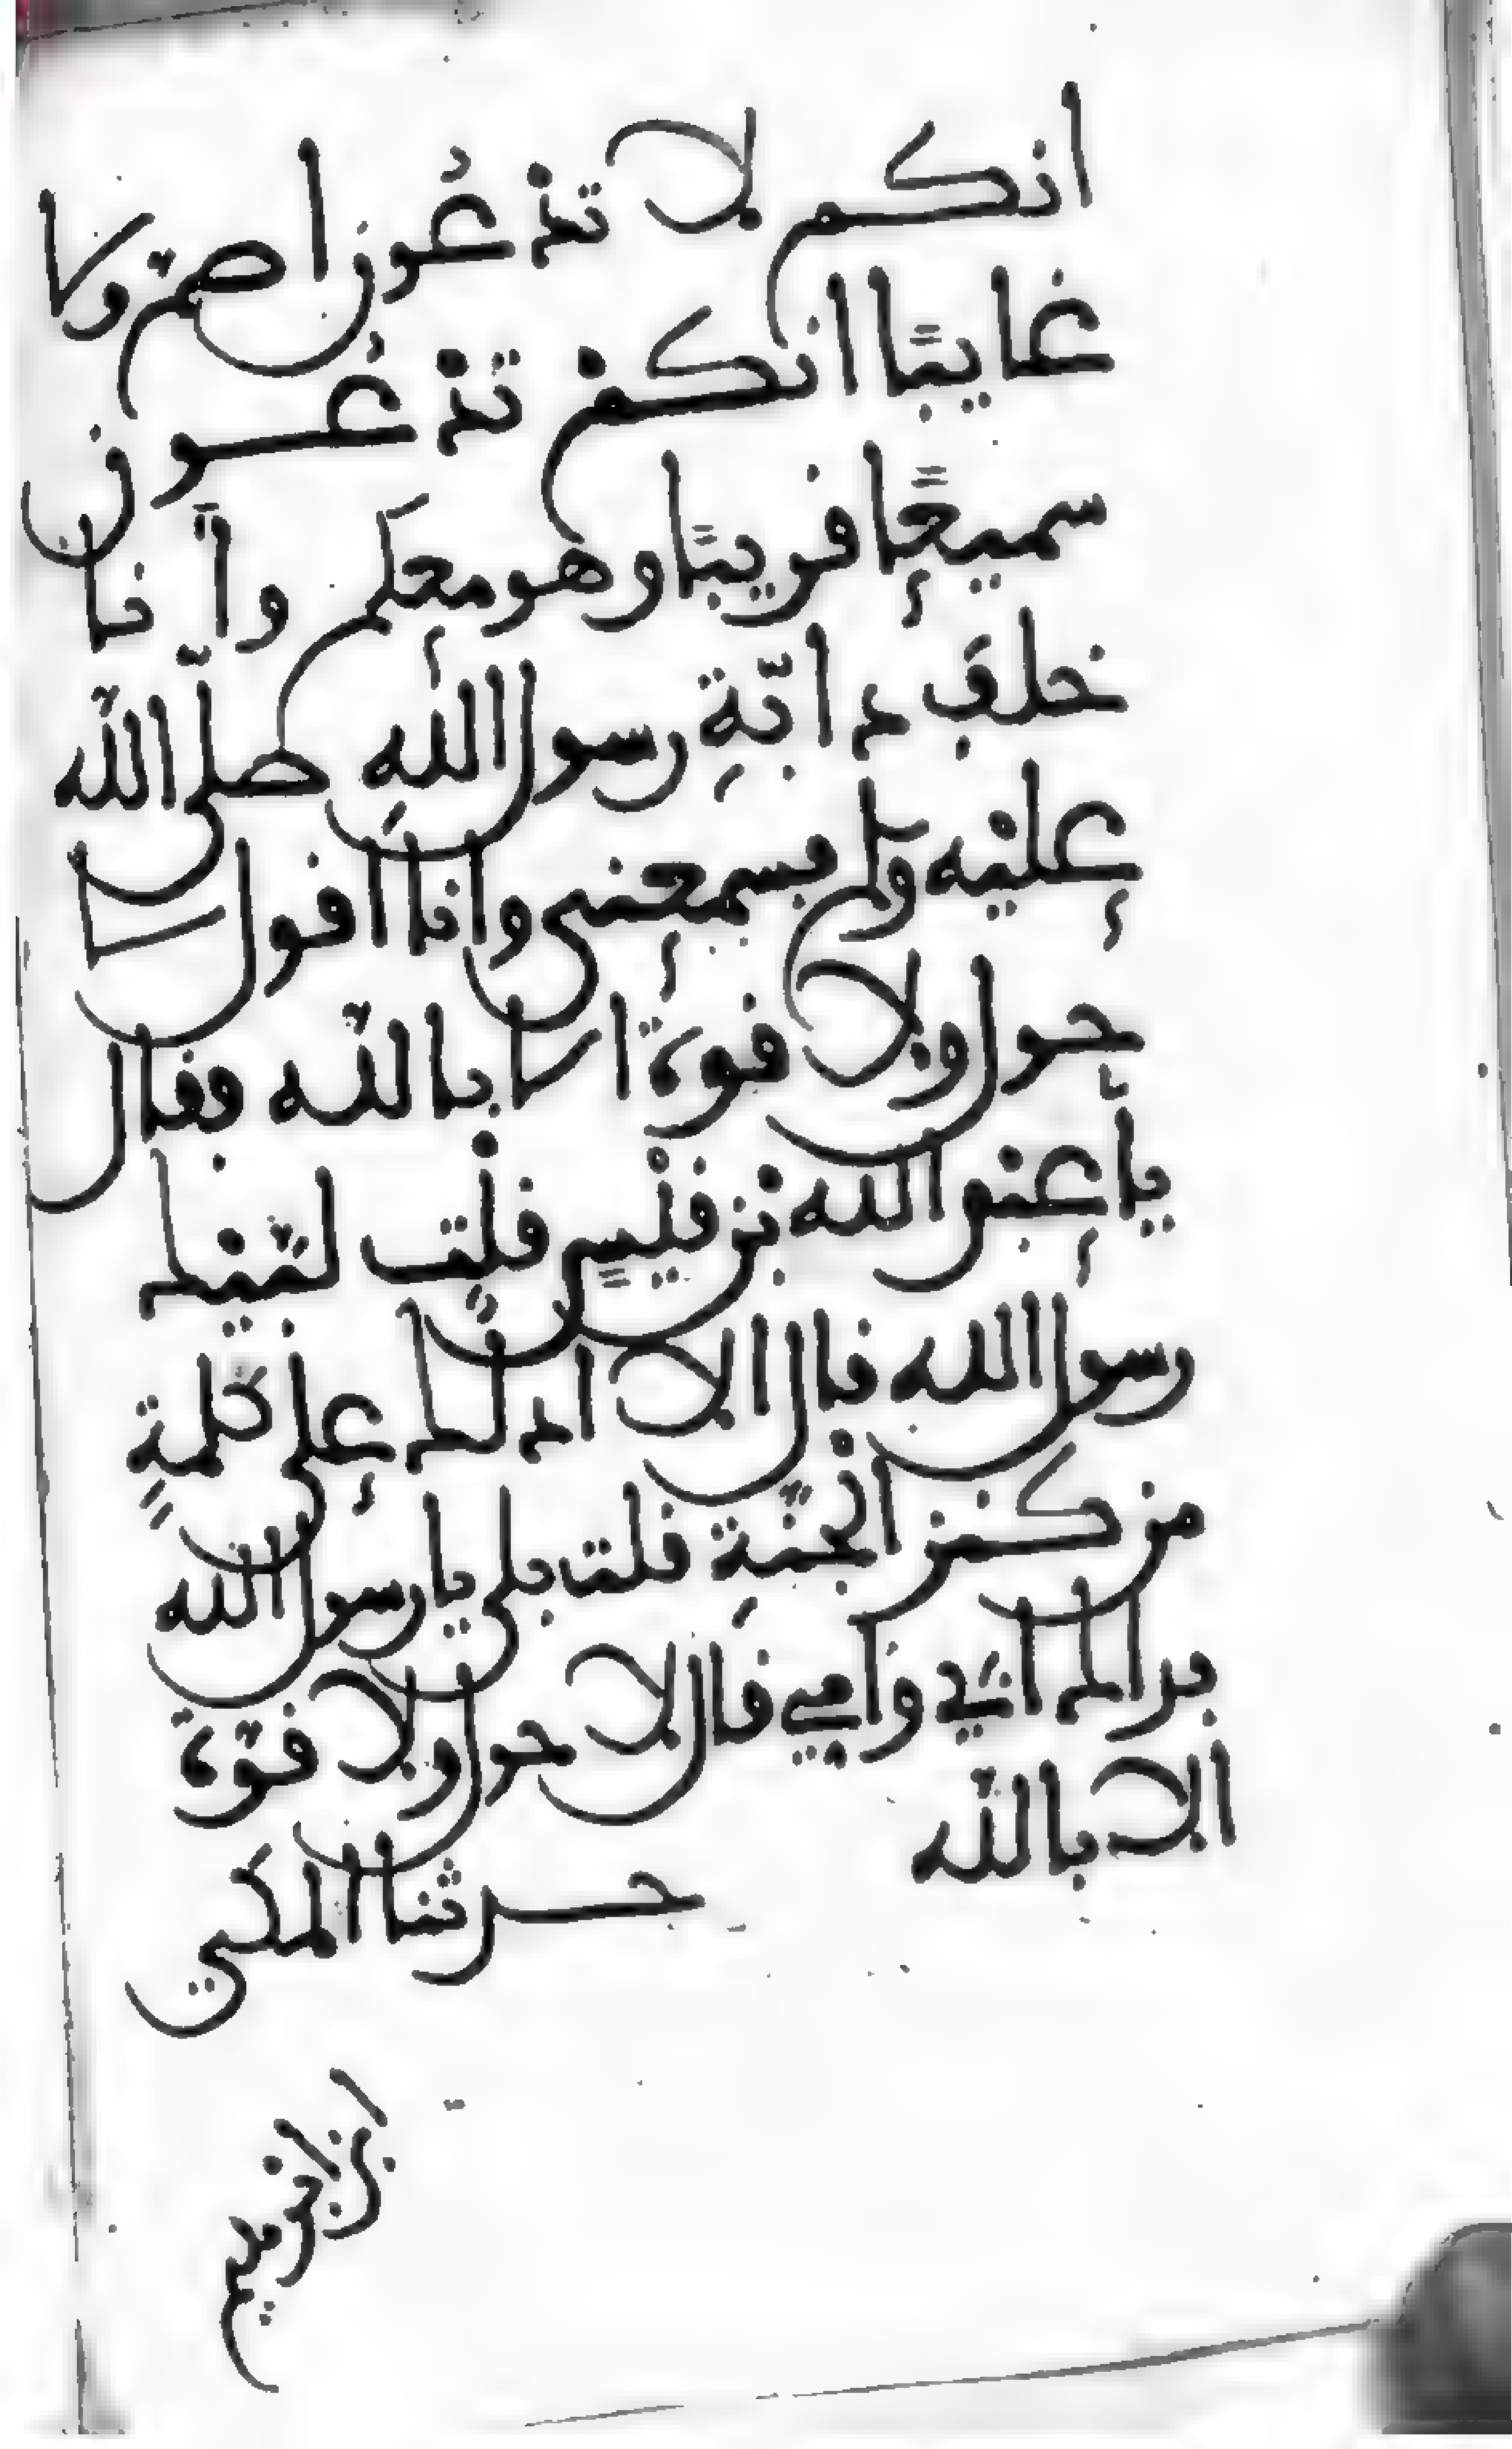 انكم لا تدْعُون اصم ولا
غايبًا انكمْ تدْعُون
سميعًا قريبًا وهو معكم وأنا
خلفَ دابّةِ رسول اللهِ صلّى الله
عليْه ولم فسمعنى وانا اقول لا
حول ولا قوة الا بالله فقال
يا عبد الله بن قيْسٍ قلت لبّيْك
رسول الله قال الا ادلك على كلمةٍ
من كنز الجنّةِ قلت بلى يا رسول الله
فداك ابي وامي قال لا حول ولا قوّة
الا بالله
حدثنا المكي
بن ابرهيم